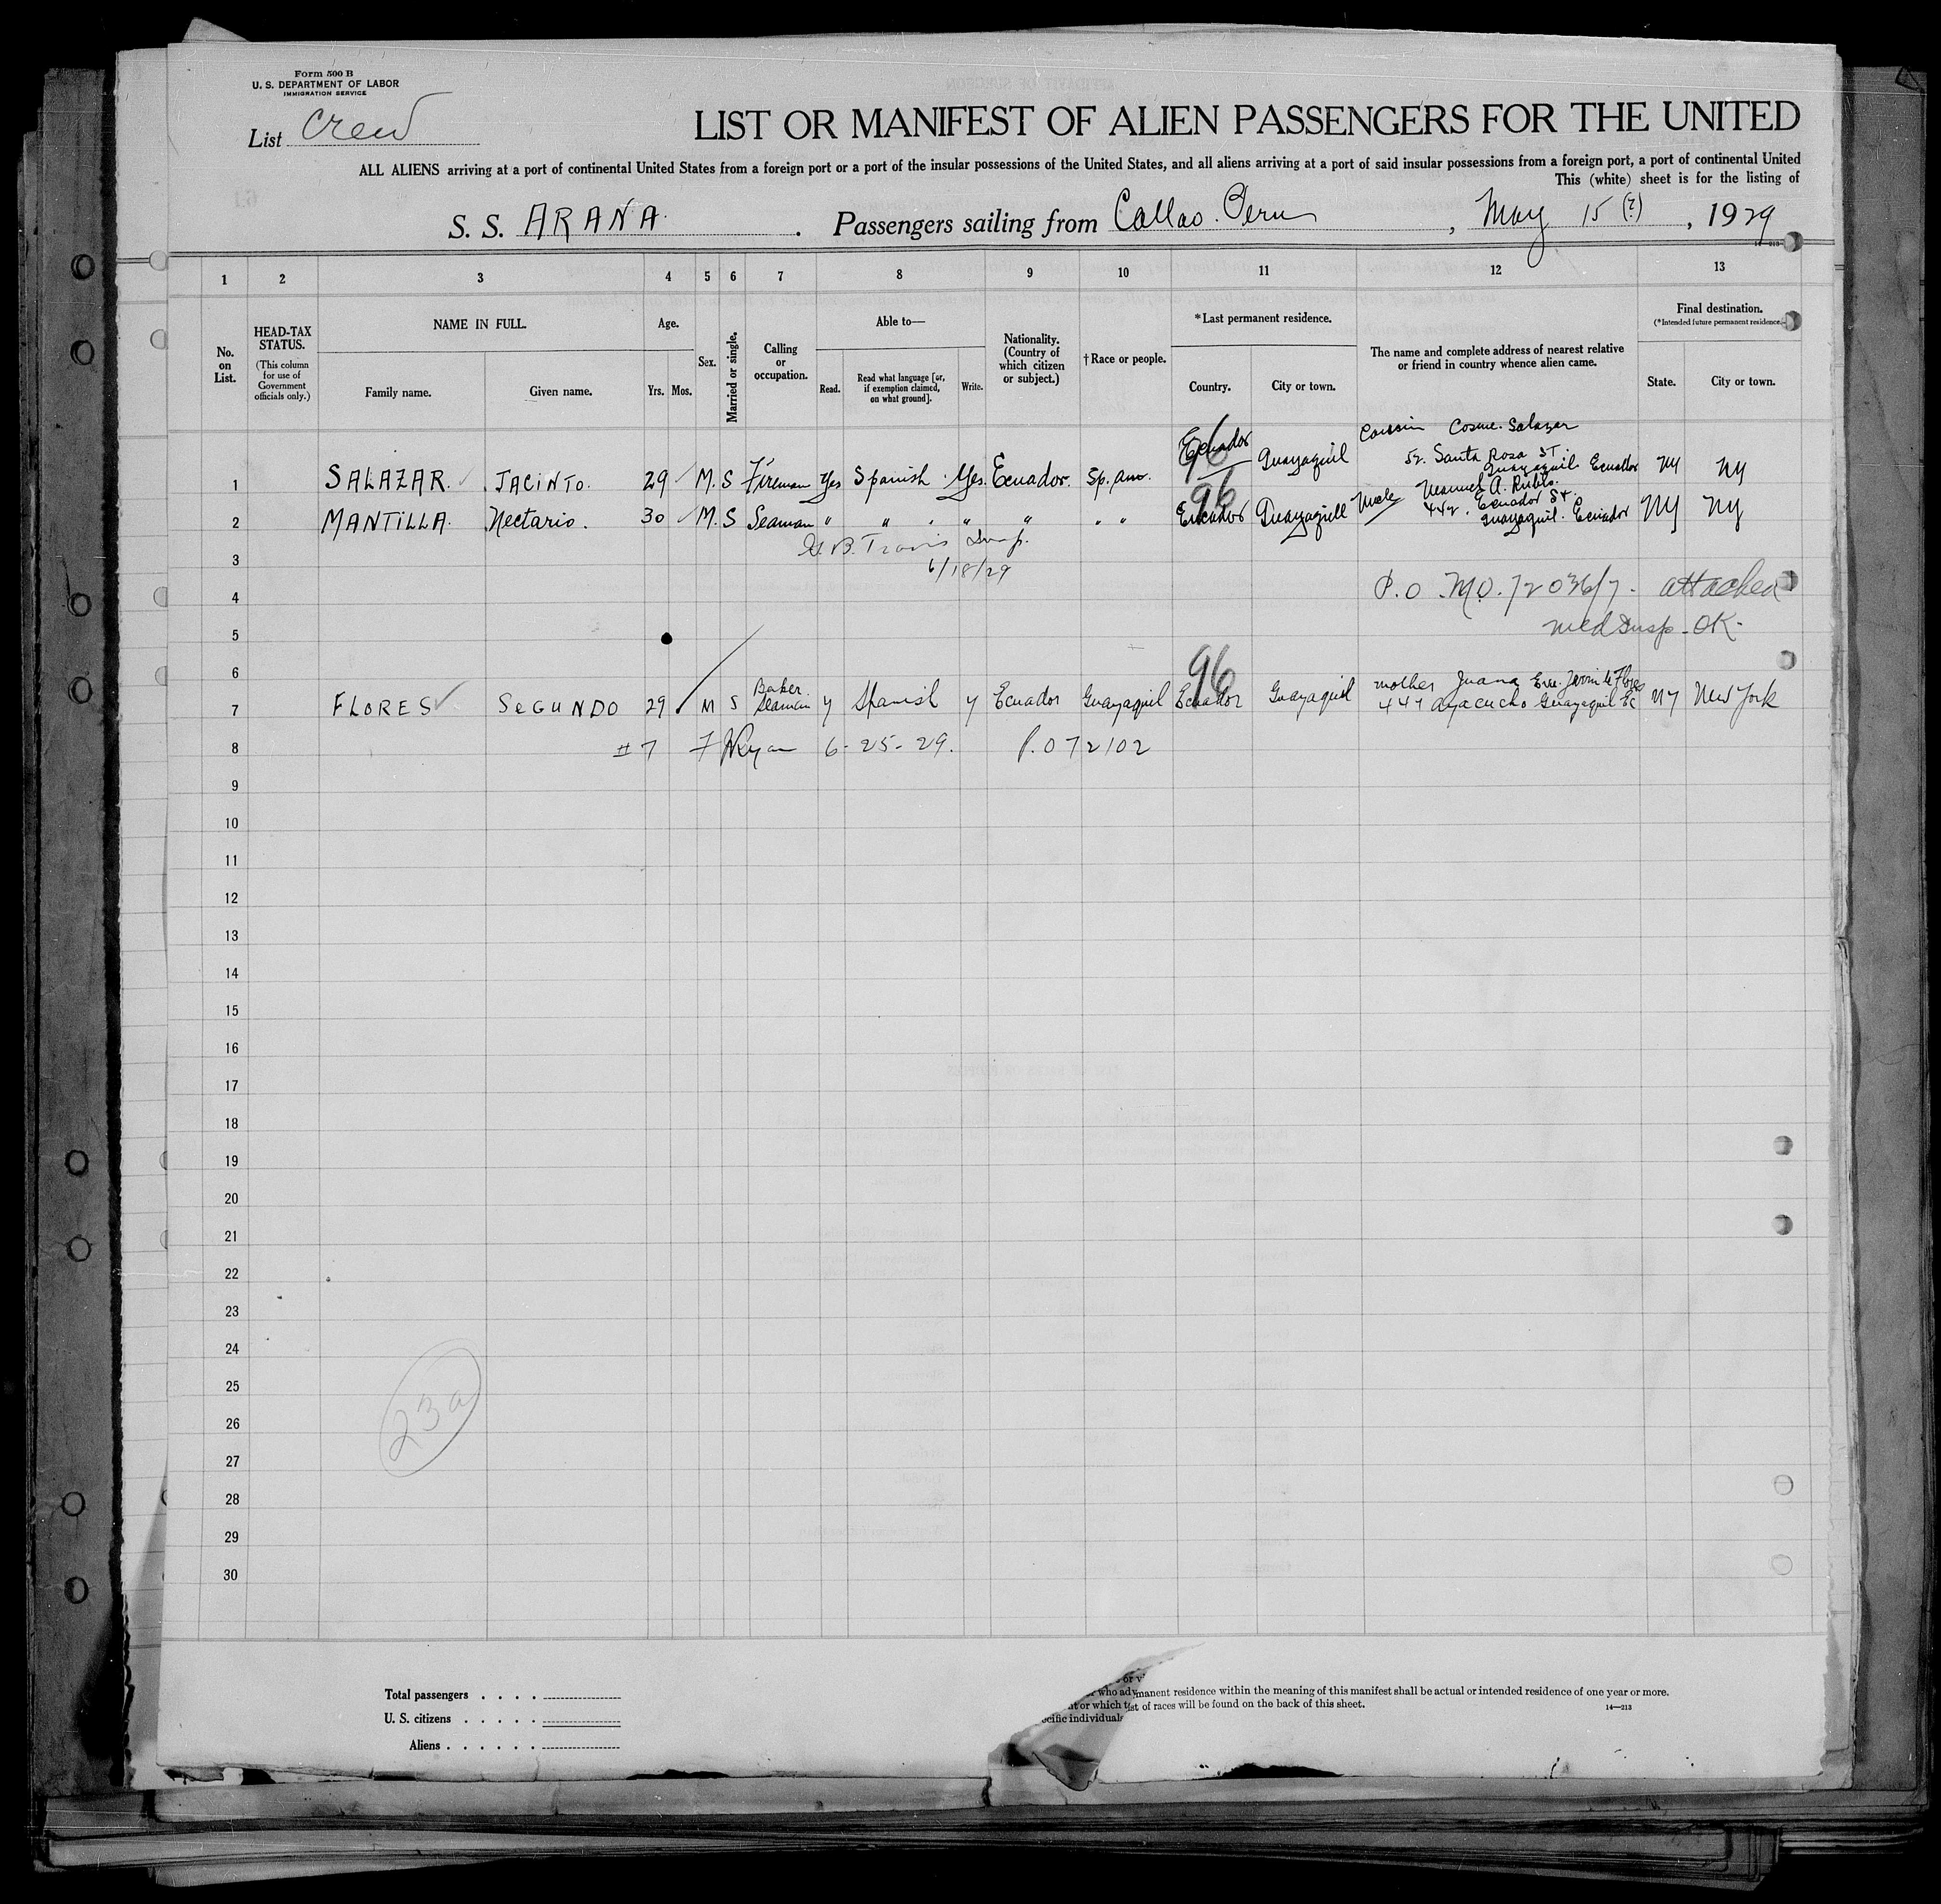 Form 500 B
U. S. DEPARTMENT OF LABOR
IMMIGRATION SERVICE
List Crew
LIST OR MANIFEST OF ALIEN PASSENGERS FOR THE UNITED
ALL ALIENS arriving at a port of continental United States from a foreign port or a port of the insular possessions of the United States, and all aliens arriving at a port of said insular possessions from a foreign port, a port of continental United
This (white) sheet is for the listing of
S. S. ARANA. Passengers sailing from Callao. Peru, May 15 (?), 1929
1 2 3 4 5 6 7 8 9 10 11 12 13
No. on List.
HEAD-TAX STATUS.
(This column for use of Government officials only.)
NAME IN FULL.
Family name. Given name.
Age.
Yrs. Mos.
Sex.
Married or single.
Calling or occupation.
Able to—
Read. Read what language [or, if exemption claimed, on what ground]. Write.
Nationality. (Country of which citizen or subject.)
†Race or people.
*Last permanent residence.
Country. City or town.
The name and complete address of nearest relative or friend in country whence alien came.
Final destination.
(*Intended future permanent residence.)
State. City or town.
96
Cousin Cosme. Salazar
1 SALAZAR. JACINTO. 29 M. S Fireman Yes Spanish Yes. Ecuador. Sp. am. Ecuador Guayaquil 52. Santa Rosa ST. Guayaquil. Ecuador NY NY
96
2 MANTILLA. Nectario. 30 M. S Seaman " " " " " " Ecuador Guayaquil Manuel A. 442. Ecuador St. Guayaquil. Ecuador NY NY
B. Travis Insp.
3
6/18/29
4 P.O. M.O. 72036/7. attached
5 med Insp. OK.
6
96
7 FLORES SEGUNDO 29 M S Baker Seaman y Spanish y Ecuador Guayaquil Ecuador Guayaquil mother Juana 447 Ayacucho Guayaquil Ec NY New York
8 #7 Ryan 6-25-29. P.O 72102
9
10
11
12
13
14
15
16
17
18
19
20
21
22
23
24
25
26
27
28
29
30
23a
Total passengers . . . .
U. S. citizens . . . . .
Aliens . . . . . .
manent residence within the meaning of this manifest shall be actual or intended residence of one year or more.
st of races will be found on the back of this sheet.
14—213